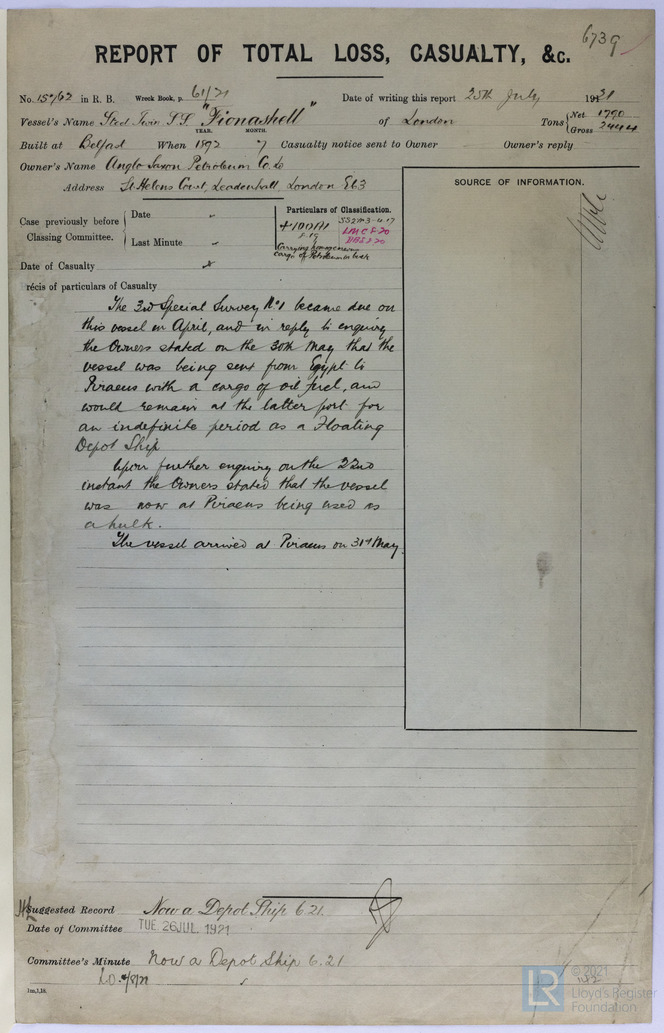 6739
REPORT OF TOTAL LOSS, CASUALTY, &c.
No. 15762 in R. B. Wreck Book, p. 61/21 Date of writing this report 25th July 1921
Vessel's Name Steel Twin S.S. "Fionashell" of London Tons Net 1790
YEAR. MONTH. Gross 2444
Built at Belfast When 1892 7 Casualty notice sent to Owner Owner's reply
Owner's Name Anglo Saxon Petroleum Co. Ld
Address St Helens Court, Leadenhall London EC3
SOURCE OF INFORMATION.
Case previously before Classing Committee.
Date "
Last Minute "
Particulars of Classification.
+100A1
LMC 8.20
Carrying homogeneous
cargo of Petroleum in bulk
Date of Casualty
récis of particulars of Casualty
The 3rd Special Survey No. 1 became due on
this vessel in April, and in reply to enquiry
the Owners stated on the 30th May that the
vessel was being sent from Egypt to
Piraeus with a cargo of oil fuel, and
would remain at the latter port for
an indefinite period as a Floating
Depot Ship
Upon further enquiry on the 22nd
instant the Owners stated that the vessel
was now at Piraeus being used as
a hulk.
The vessel arrived at Piraeus on 31st May.
Suggested Record Now a Depot Ship 6.21.
Date of Committee TUE. 26 JUL. 1921
Committee's Minute Now a Depot Ship 6.21
LR © 2021
Lloyd's Register
Foundation